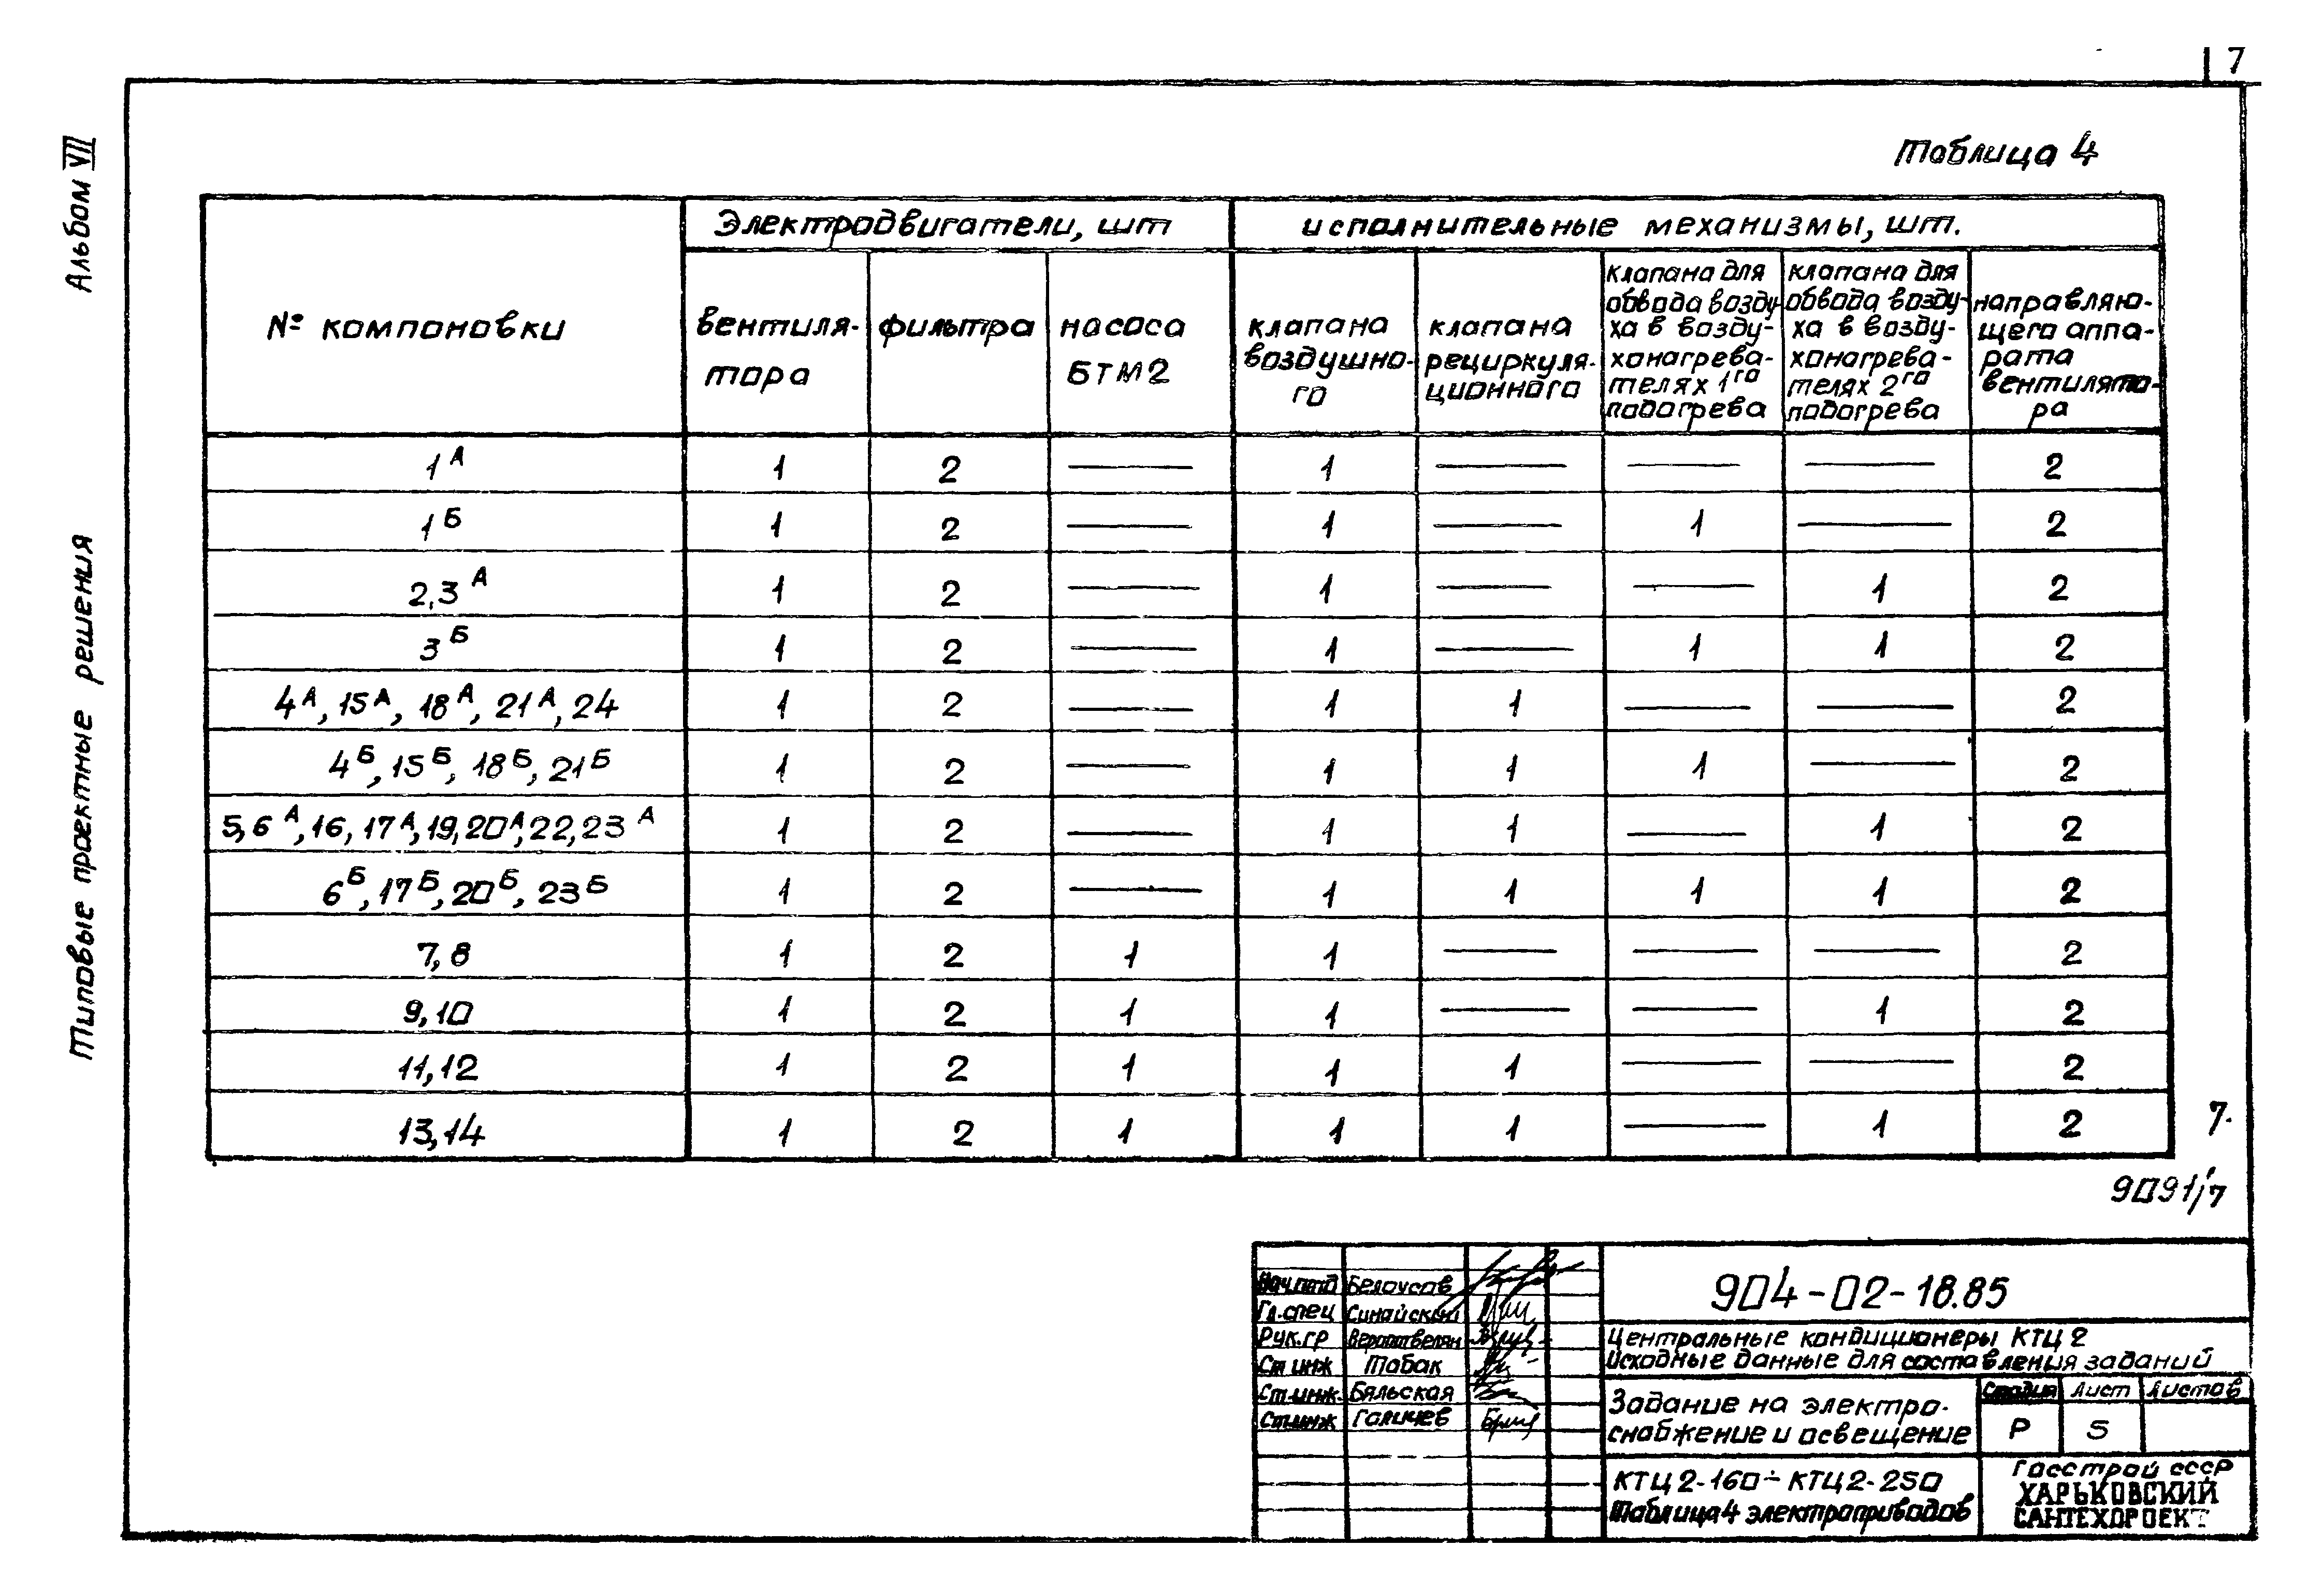 7
Альбом VII
Типовые проектные решения
Таблица 4
№ компоновки
Электродвигатели, шт
исполнительные механизмы, шт.
вентиля-
тора
фильтра
насоса
БТМ2
клапана
воздушно-
го
клапана
рециркуля-
ционного
клапана для
обвода возду-
ха в возду-
хонагрева-
телях 1го
подогрева
клапана для
обвода возду-
ха в возду-
хонагрева-
телях 2го
подогрева
направляю-
щего аппа-
рата
вентилято-
ра
1А 1 2 — 1 — — — 2
1Б 1 2 — 1 — 1 — 2
2,3А 1 2 — 1 — — 1 2
3Б 1 2 — 1 — 1 1 2
4А, 15А, 18А, 21А, 24 1 2 — 1 1 — — 2
4Б, 15Б, 18Б, 21Б 1 2 — 1 1 1 — 2
5, 6А, 16, 17А, 19, 20А, 22, 23А 1 2 — 1 1 — 1 2
6Б, 17Б, 20Б, 23Б 1 2 — 1 1 1 1 2
7, 8 1 2 1 1 — — — 2
9, 10 1 2 1 1 — — 1 2
11, 12 1 2 1 1 1 — — 2
13, 14 1 2 1 1 1 — 1 2
7.
9091/7
Нач.отд Белоусов
Гл.спец Синайский
Рук.гр
Ст инж Тобак
Ст.инж. Бяльская
Ст.инж Галичев
904-02-18.85
Центральные кондиционеры КТЦ 2
Исходные данные для составления заданий
Задание на электро-
снабжение и освещение
Стадия Лист Листов
Р 5
КТЦ 2-160÷КТЦ 2-250
Таблица 4 электроприводов
Госстрой СССР
ХАРЬКОВСКИЙ
САНТЕХПРОЕКТ